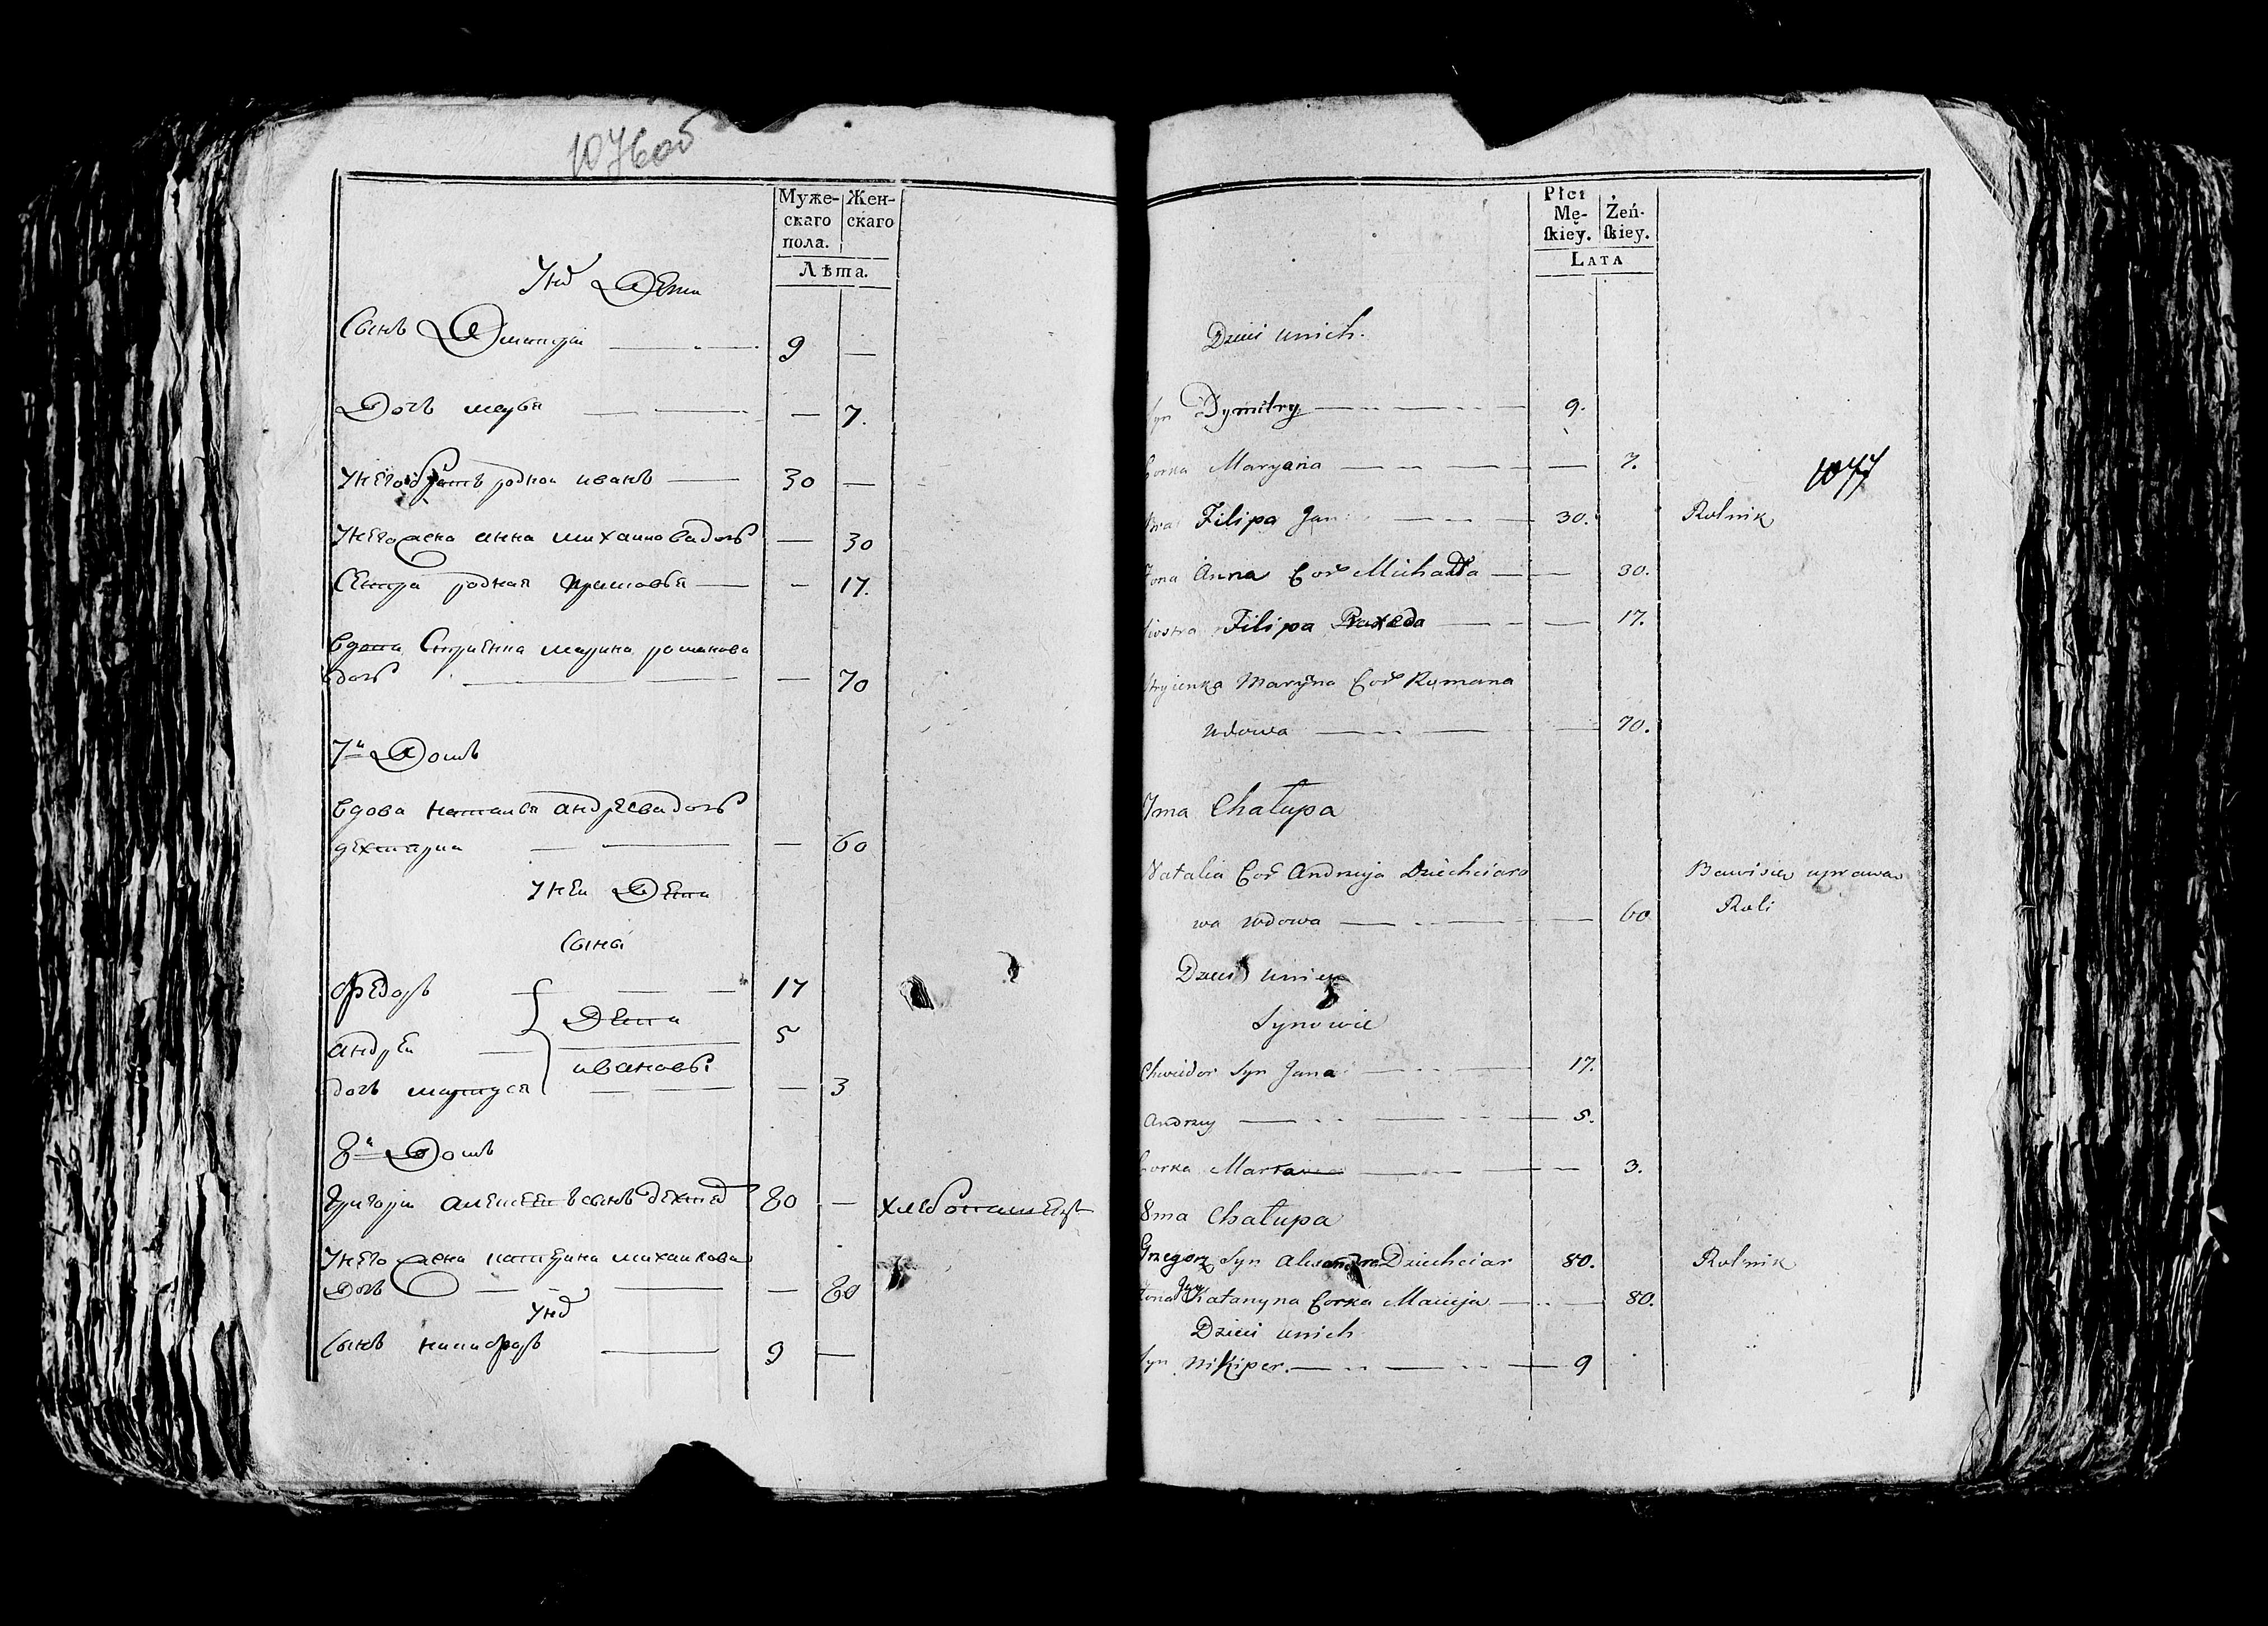 1076об
Муже-
скаго
пола.
Жен-
скаго
Лѣта.
Унд Дети
Сынъ Дмитрій 9 —
Дочь 7.
Унего братъ родной иванъ 30 —
Унего жена анна михаило вадочь — 30
Сестра родная — 17.
вдова Стриенка марина романова
дочь — 70
7й Домъ
вдова наталья андреева дочь
дехтярии — 60
Уней Дети
Сыны
федоръ 17
андрей 5
Дети
ивановы
дочь — 3
8й Домъ
Григорий сынъ 80 — хлебопашецъ
Унего жена катерина михаилова
Дочь — 80
Унд
Сынъ никифоръ 9 —
Płci
Mę-
skiey.
Żeń-
skiey.
Lata
Dzieci unich.
Syn Dymitry 9.
Corka Maryana — 7.
1077
Brat Filipa Jan 30. Rolnik
Zona Anna Cor Michała — 30.
Siostra Filipa Praxeda — 17.
Stryienka Maryna Cor Romana
wdowa — 70.
7ma Chałupa
Natalia Cor Andrzeja Dziechciaro
wa wdowa — 60 Bawi sie uprawa
Roli
Dzieci uniey
Synowie
Chwiedor Syn Jana 17.
Andrzey 5.
Corka Marta — 3.
8ma Chałupa
Grzegorz Syn Dziechciar 80. Rolnik
Zona Jego Katarzyna Corka Macieja — 80.
Dzieci unich
Syn Nikiper. 9